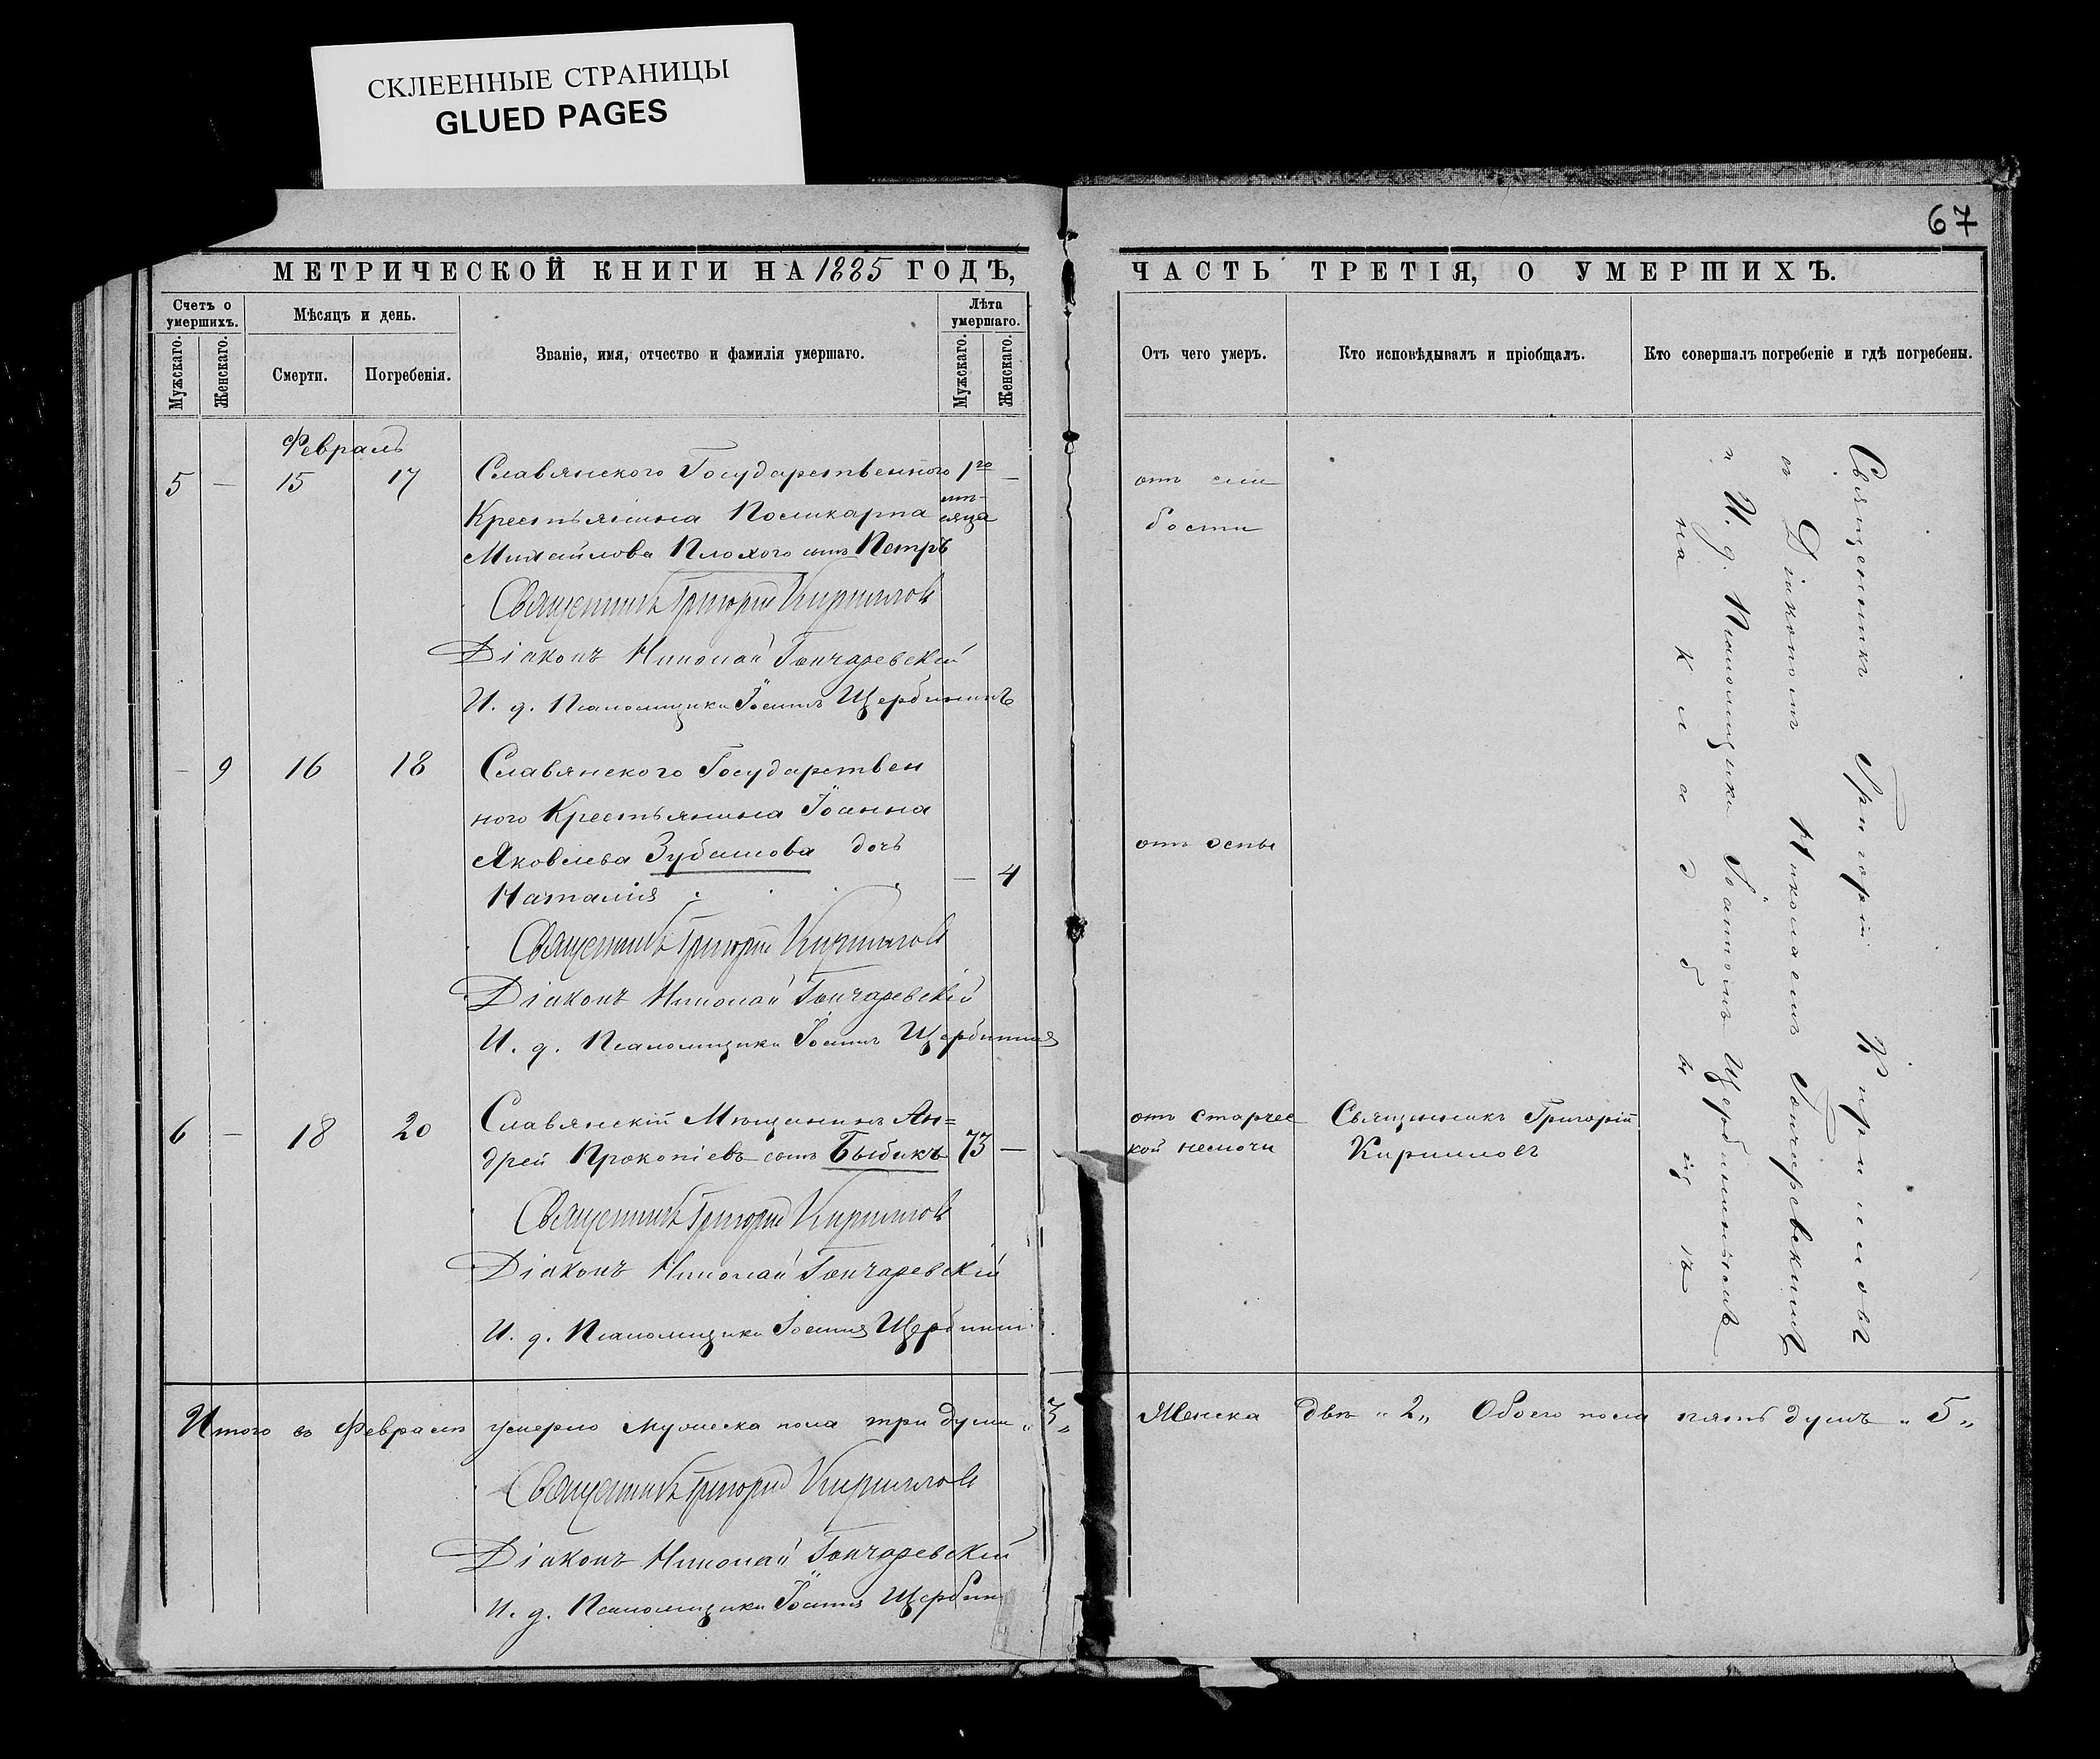 СКЛЕЕННЫЕ СТРАНИЦЫ
GLUED PAGES
67
МЕТРИЧЕСКОЙ КНИГИ НА 1885 ГОДЪ,
Счетъ о умершихъ.
Мужскаго.
Женскаго.
Мѣсяцъ и день.
Смерти.
Погребенія.
Званіе, имя, отчество и фамилія умершаго.
Лѣта умершаго.
Мужскаго.
Женскаго.
Февраль
5 — 15 17 Славянского Государственного 1го —
Крестьянина Поликарпа мѣ-
сяца
Михайлова Плохого сынъ Петръ
Священникъ Григорій Кирилловъ
Діаконъ Николай Гончаревскій
И. д. Псаломщика Іоаннъ Щербининъ
— 9 16 18 Славянского Государствен
ного Крестьянина Іоанна
Яковлева Зубашова дочь
Наталія — 4
Священникъ Григорій Кирилловъ
Діаконъ Николай Гончаревскій
И. д. Псаломщика Іоаннъ Щербининъ
6 — 18 20 Славянскій Мѣщанинъ Ан=
дрей Прокопіевъ сынъ Быбикъ 73 —
Священникъ Григорій Кирилловъ
Діаконъ Николай Гончаревскій
И. д. Псаломщика Іоаннъ Щербинин
Итого въ Февралѣ умерло мужеска пола три души „3„
Священникъ Григорій Кирилловъ
Діаконъ Николай Гончаревскій
И. д. Псаломщика Іоаннъ Щербин
ЧАСТЬ ТРЕТІЯ, О УМЕРШИХЪ.
Отъ чего умеръ.
Кто исповѣдывалъ и пріобщалъ.
Кто совершалъ погребеніе и гдѣ погребены.
отъ сла
бости
отъ оспы
отъ старчес
кой немочи
Священникъ Григорій
Кирилловъ
Священникъ Григорій Кирилловъ
съ Діакономъ Николаемъ Гончаревскимъ
и И. д. Псаломщика Іоанномъ Щербининымъ
на кладбищѣ
Женска двѣ „2„ Обоего пола пять душъ „5„